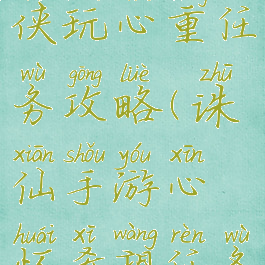 侠玩心重任
wù gōng lüè zhū
务攻略(诛
xiān shǒu yóu xīn
仙手游心
huái xī wàng rèn wù
怀希望任务